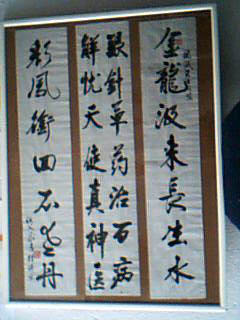 金龍汲来長生水
銀針草药治百病
解忧天使真神医
彩凤衔回不老丹